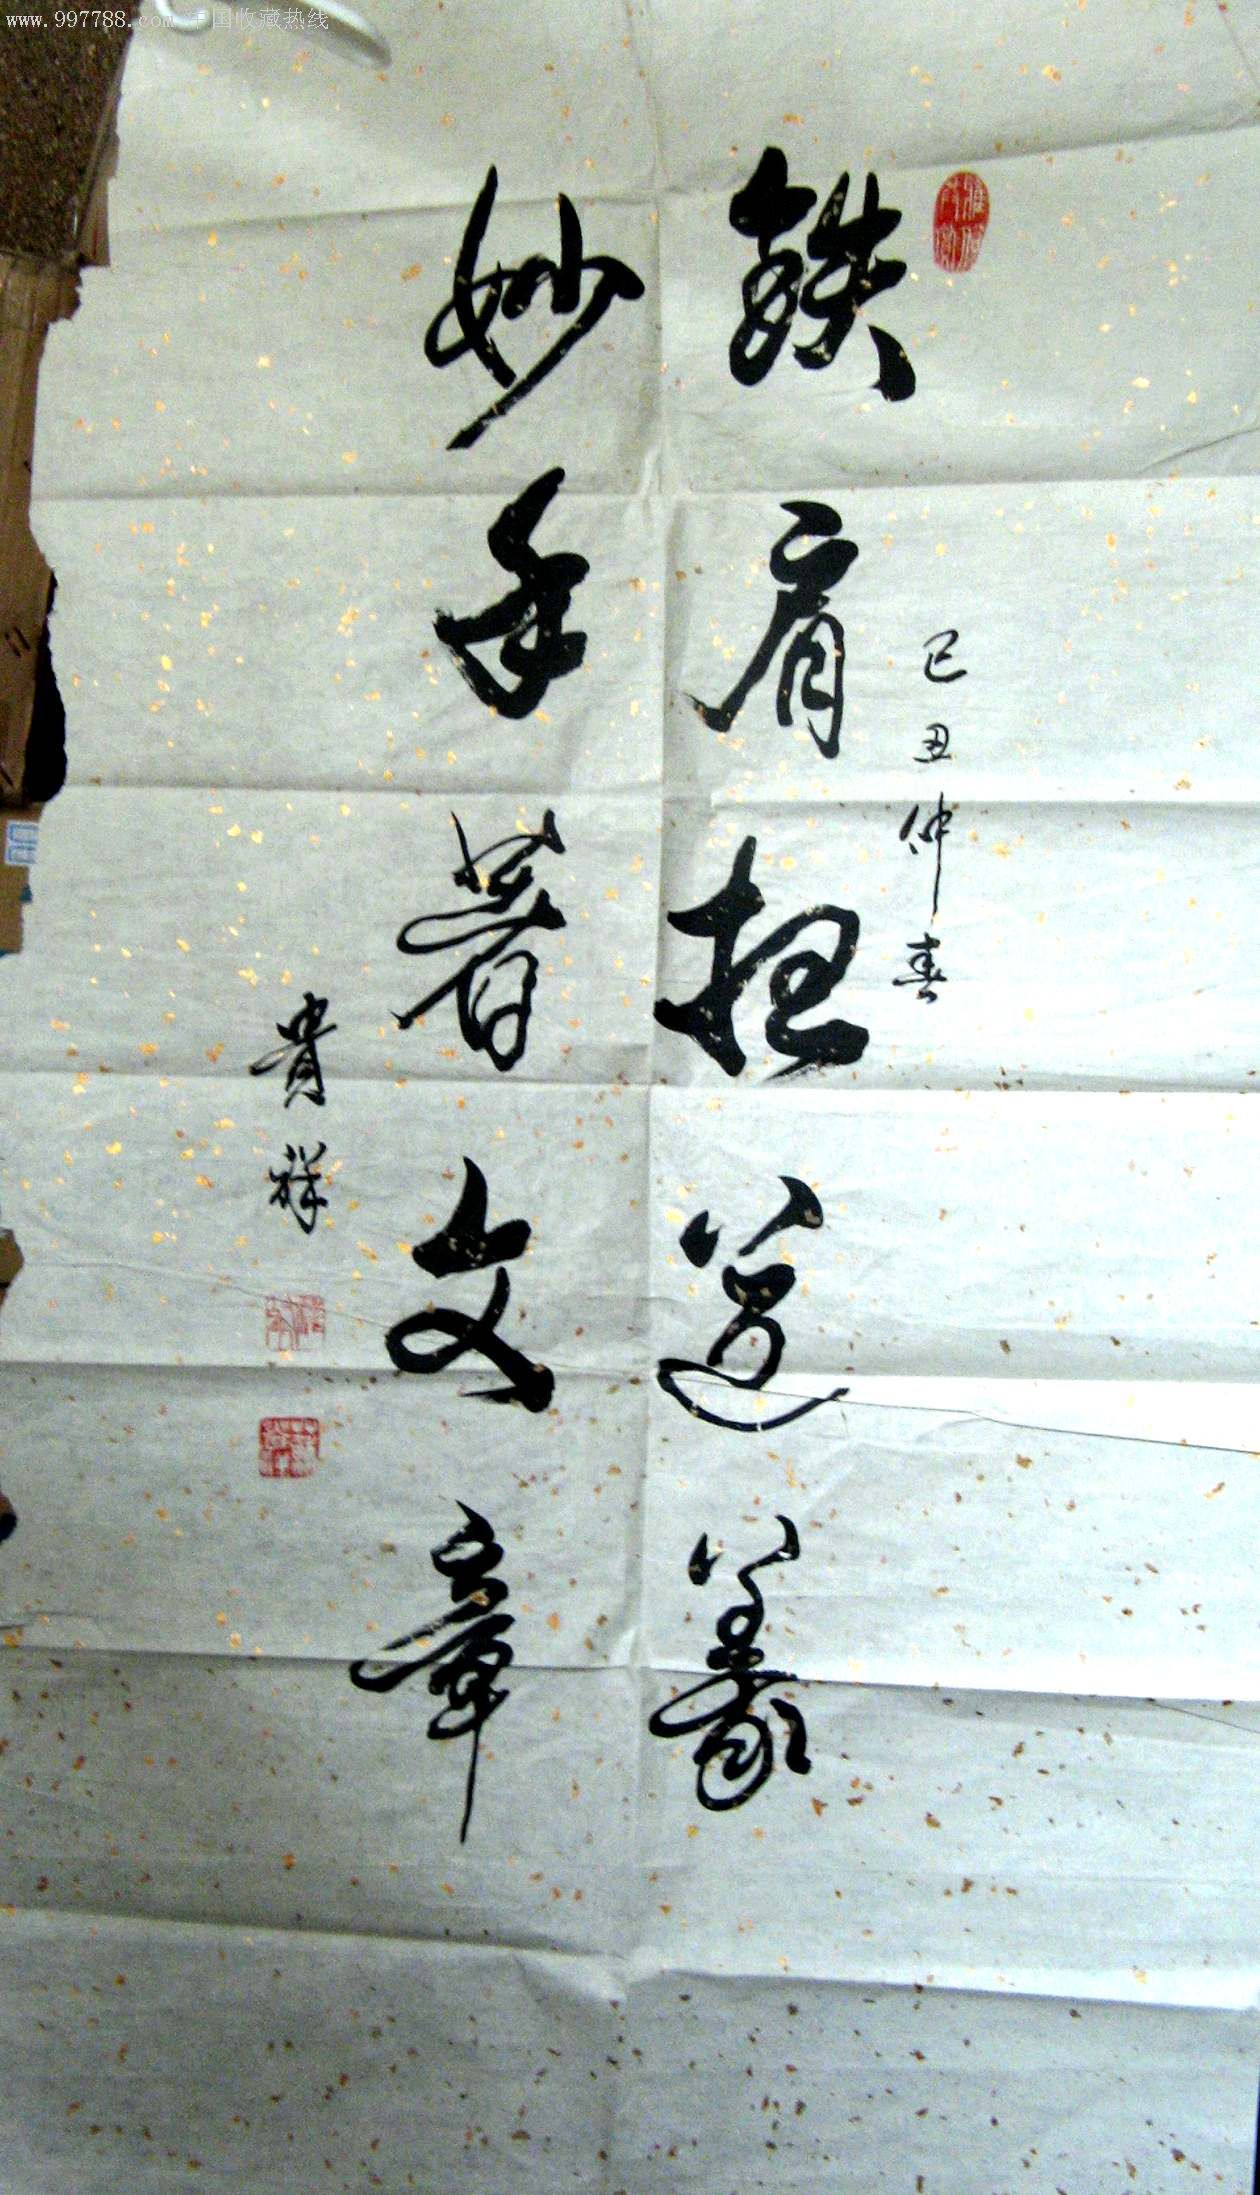 www.997788.com 中国收藏热线
鐵肩担道義
己丑仲春
妙手著文章
贵祥